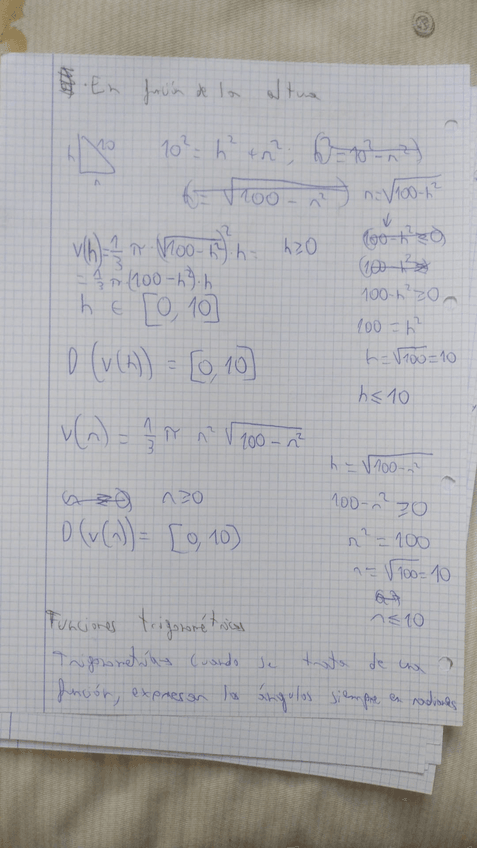 . En función de la altura
h 10 n
10² = h² + n² ; (h² = 10² - n²)
(h = √100 - n²) n = √100-h²
(100 - h² ≥ 0)
V(h) = 1/3 π · (√100-h²)² · h = h ≥ 0
= 1/3 π (100 - h²) · h
100 - h² ≥ 0
h ∈ [0, 10]
100 = h²
h = √100 = 10
D (V(h)) = [0, 10]
h ≤ 10
V(n) = 1/3 π n² √100 - n²
h = √100-n²
n ≥ 0
100 - n² ≥ 0
D (V(n)) = [0, 10)
n² = 100
n = √100 = 10
n ≤ 10
Funciones trigonométricas
Trigonometrías Cuando se trata de una
función, expresan los ángulos siempre en radianes